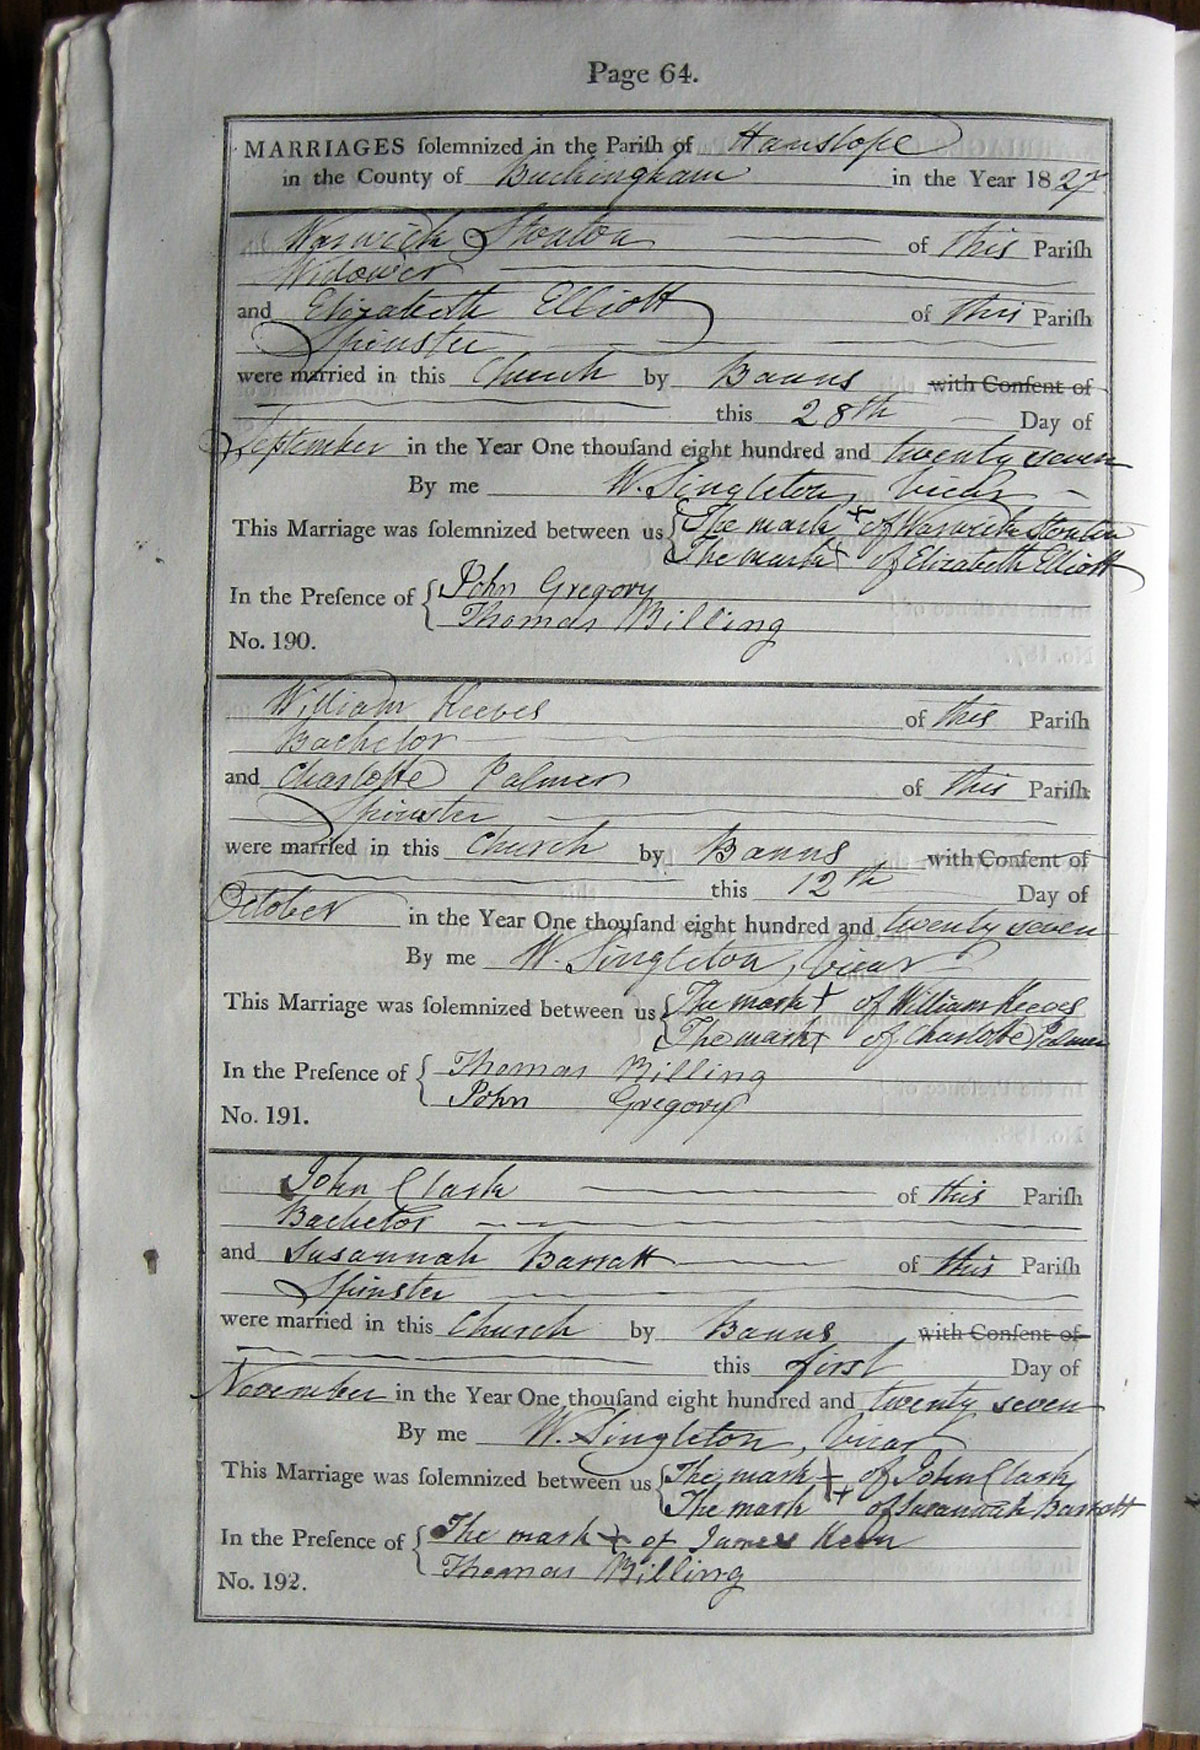 Page 64.
MARRIAGES ſolemnized in the Pariſh of Hanslope
in the County of Buckingham in the Year 1827
Warwick Stonton of this Pariſh
Widower
and Elizabeth Elliott of this Pariſh
Spinster
were married in this Church by Banns with Conſent of
this 28th Day of
September in the Year One thouſand eight hundred and twenty seven
By me W. Singleton, Vicar
This Marriage was ſolemnized between us The mark + of Warwick Stonton
The mark + of Elizabeth Elliott
In the Preſence of John Gregory
Thomas Billing
No. 190.
William Keeves of this Pariſh
Bachelor
and Charlotte Palmer of this Pariſh
Spinster
were married in this Church by Banns with Conſent of
this 12th Day of
October in the Year One thouſand eight hundred and twenty seven
By me W. Singleton, Vicar
This Marriage was ſolemnized between us The mark + of William Keeves
The mark + of Charlotte Palmer
In the Preſence of Thomas Billing
John Gregory
No. 191.
John Clark of this Pariſh
Bachelor
and Susannah Barratt of this Pariſh
Spinster
were married in this Church by Banns with Conſent of
this first Day of
November in the Year One thouſand eight hundred and twenty seven
By me W. Singleton, Vicar
This Marriage was ſolemnized between us The mark + of John Clark
The mark + of Susannah Barratt
In the Preſence of The mark + of James Keen
Thomas Billing
No. 192.